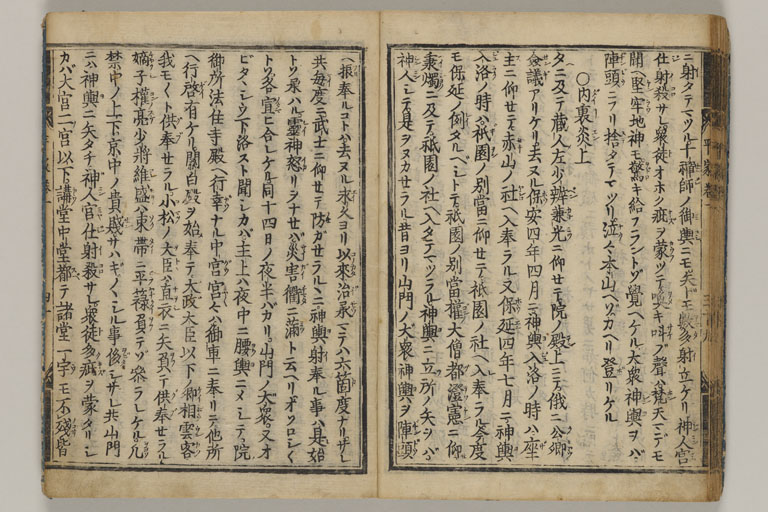 ニ射タテマツル十禅師ノ御輿ニモ矢ドモ数多射立ケリ神人宮
仕射殺サレ衆徒オホク疵ヲ蒙ツテ喚キ叫ブ聲ハ梵天マデモ
聞ヘ堅牢地神モ驚キ給フラントゾ覺ヘケル大衆神輿ヲバ
陣頭ニフリ捨タテマツリ泣々本山ヘゾカヘリ登リケル
○内裏炎上
夕ニ及テ蔵人左少辨兼光ニ仰セテ院ノ殿上ニテ俄ニ公卿
僉議アリケリ去ヌル保安四年四月ニ神輿入洛ノ時ハ座
主ニ仰セテ赤山ノ社ヘ入奉ラル又保延四年七月ニ神輿
入洛ノ時ハ祇園ノ別當ニ仰セテ祇園ノ社ヘ入奉ラル今度
モ保延ノ例タルベシトテ祇園ノ別當權大僧都澄憲ニ仰
秉燭ニ及テ祇園ノ社ヘ入タテマツラル神輿ニ立所ノ矢ヲバ
神人シテ是ヲヌカセラル昔ヨリ山門ノ大衆神輿ヲ陣頭
ヘ振奉ルコトハ去ヌル永久ヨリ以來治承マテハ六箇度ナリサレ
共毎度ニ武士ニ仰セテ防ガセラルヽニ神輿射奉ル事ハ是始
トゾ承ハル靈神怒リヲナセバ災害衢ニ満ト云ヘリオソロシ
トゾ各宣ヒ合レケル同十四日ノ夜半バカリ山門ノ大衆又オ
ビタヽシウ下洛スト聞シカバ主上ハ夜中ニ腰輿ニメシテ院
御所法住寺殿ヘ行幸ナル中宮宮々ハ御車ニ奉リテ他所
ヘ行啓有ケル關白殿ヲ始奉テ太政大臣以下ノ卿相雲客
我モ〳〵ト供奉セラル小松ノ大臣ハ直衣ニ矢負テ供奉セラル
嫡子權亮少將維盛ハ束帶ニ平簶負テゾ參ラレケル凡
禁中ノ上下京中ノ貴賤サハギノヽシル事

ニハ神輿ニ矢タチ神人宮仕射殺サレ衆徒多疵ヲ蒙タリシ
カバ大宮二宮以下講堂中堂都テ諸堂一宇モ不残皆